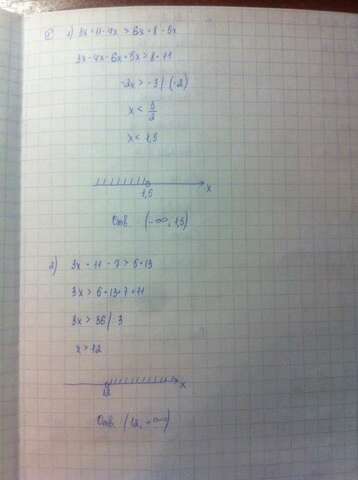 1) 3x + 11 - 4x > 6x + 8 - 5x
3x - 4x - 6x + 5x > 8 - 11
-2x > -3 / (-2)
x < 3/2
x < 1,5
1,5 x
Отв. (-∞; 1,5)
2) 3x - 11 - 7 > 5 + 13
3x > 5 + 13 + 7 + 11
3x > 36 / 3
x > 12
12 x
Отв. (12; +∞)